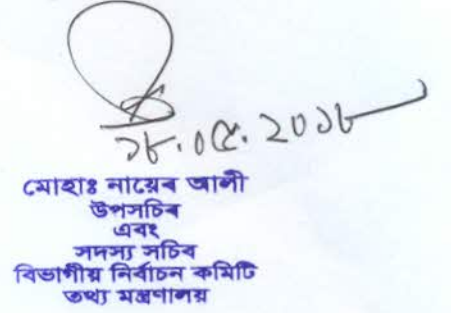 ১৮.০৫.২০১৮
মোহাঃ নায়েব আলী
উপসচিব
এবং
সদস্য সচিব
বিভাগীয় নির্বাচন কমিটি
তথ্য মন্ত্রণালয়